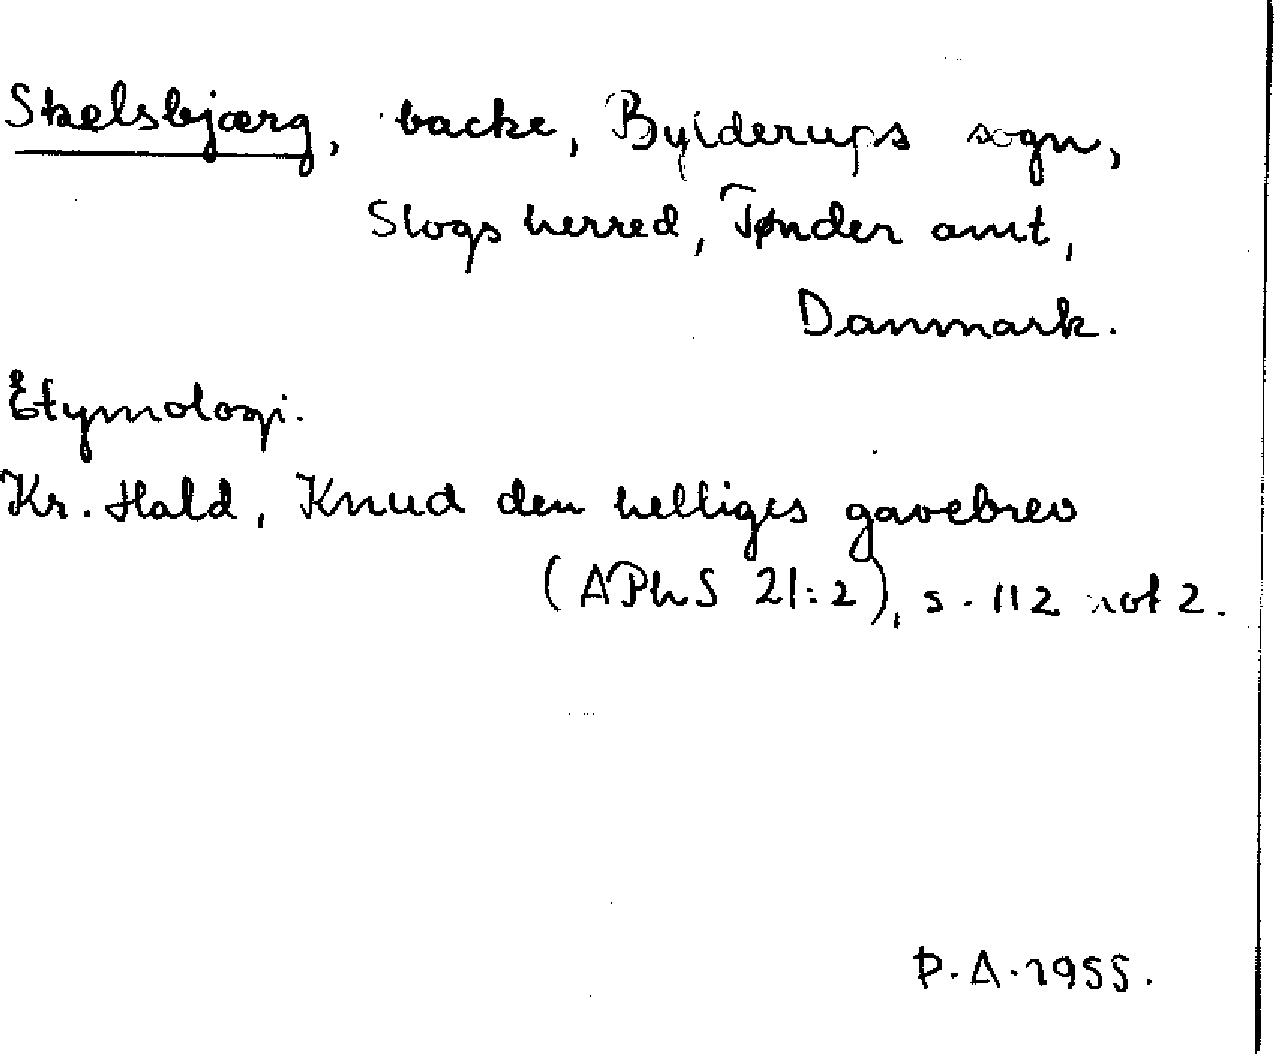 Skelsbjærg, backe, Bylderups sogn,
Slogs herred, Tønder amt,
Danmark.
Etymologi.
Kr. Hald, Knud den helliges gavebrev
(APhS 21:2), s. 112 not 2.
P.A. 1955.